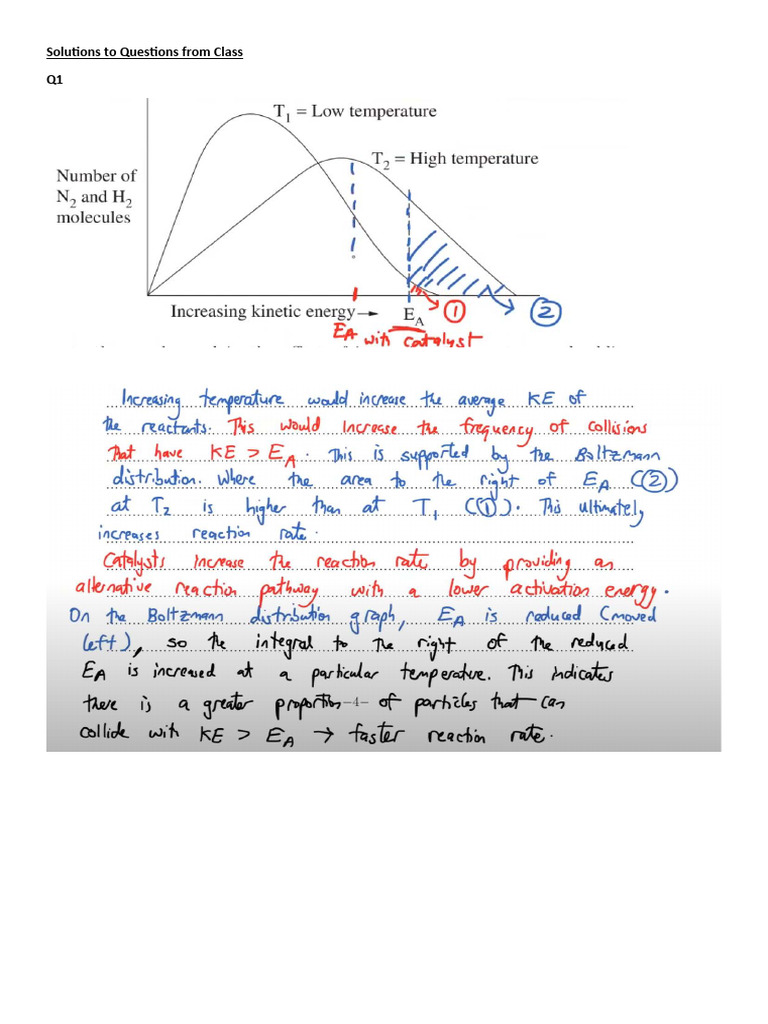 Solutions to Questions from Class
Q1
T1 = Low temperature
T2 = High temperature
Number of
N2 and H2
molecules
Increasing kinetic energy→ EA ① ②
EA with catalyst
Increasing temperature would increase the average KE of
the reactants. This would increase the frequency of collisions
that have KE > EA. This is supported by the Boltzmann
distribution. Where the area to the right of EA (②)
at T2 is higher than at T1 (①). This ultimately
increases reaction rate.
Catalysts increase the reaction rate by providing an
alternative reaction pathway with a lower activation energy.
On the Boltzmann distribution graph, EA is reduced (moved
left), so the integral to the right of the reduced
EA is increased at a particular temperature. This indicates
there is a greater proportion –4– of particles that can
collide with KE > EA → faster reaction rate.